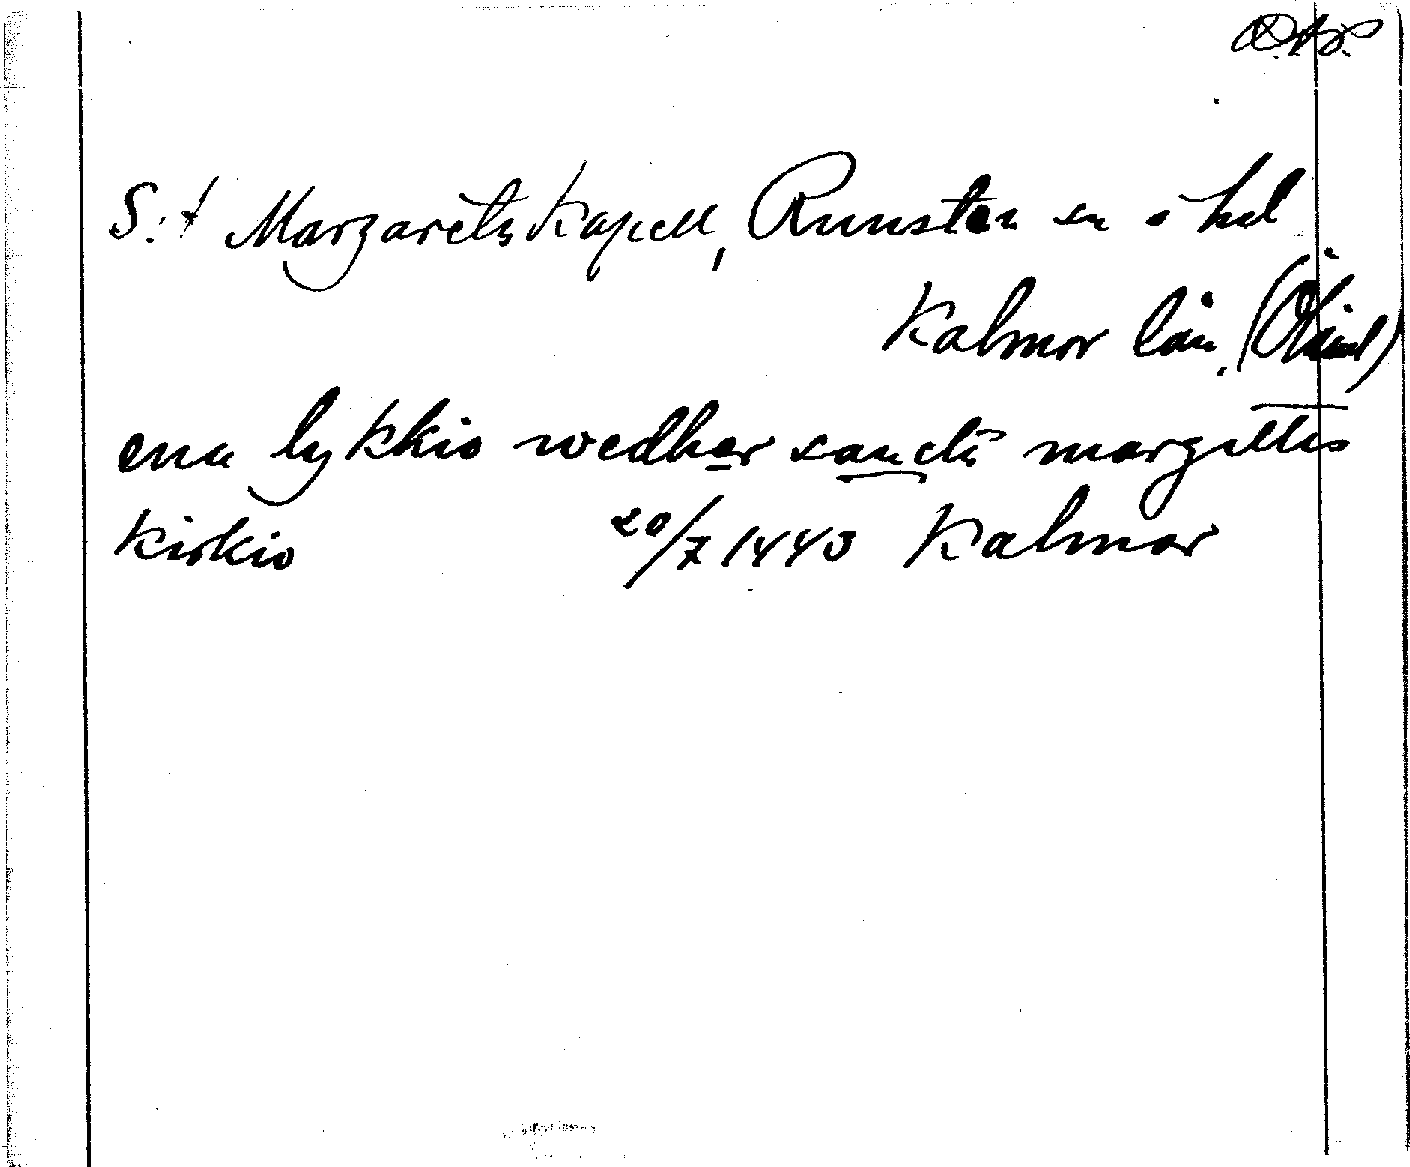 S:t Margaretskapell, Runsten sn ö hd
Kalmar län. (Öland)
ena lykkio wedher sancti margittis
kirkio 20/7 1443 Kalmar